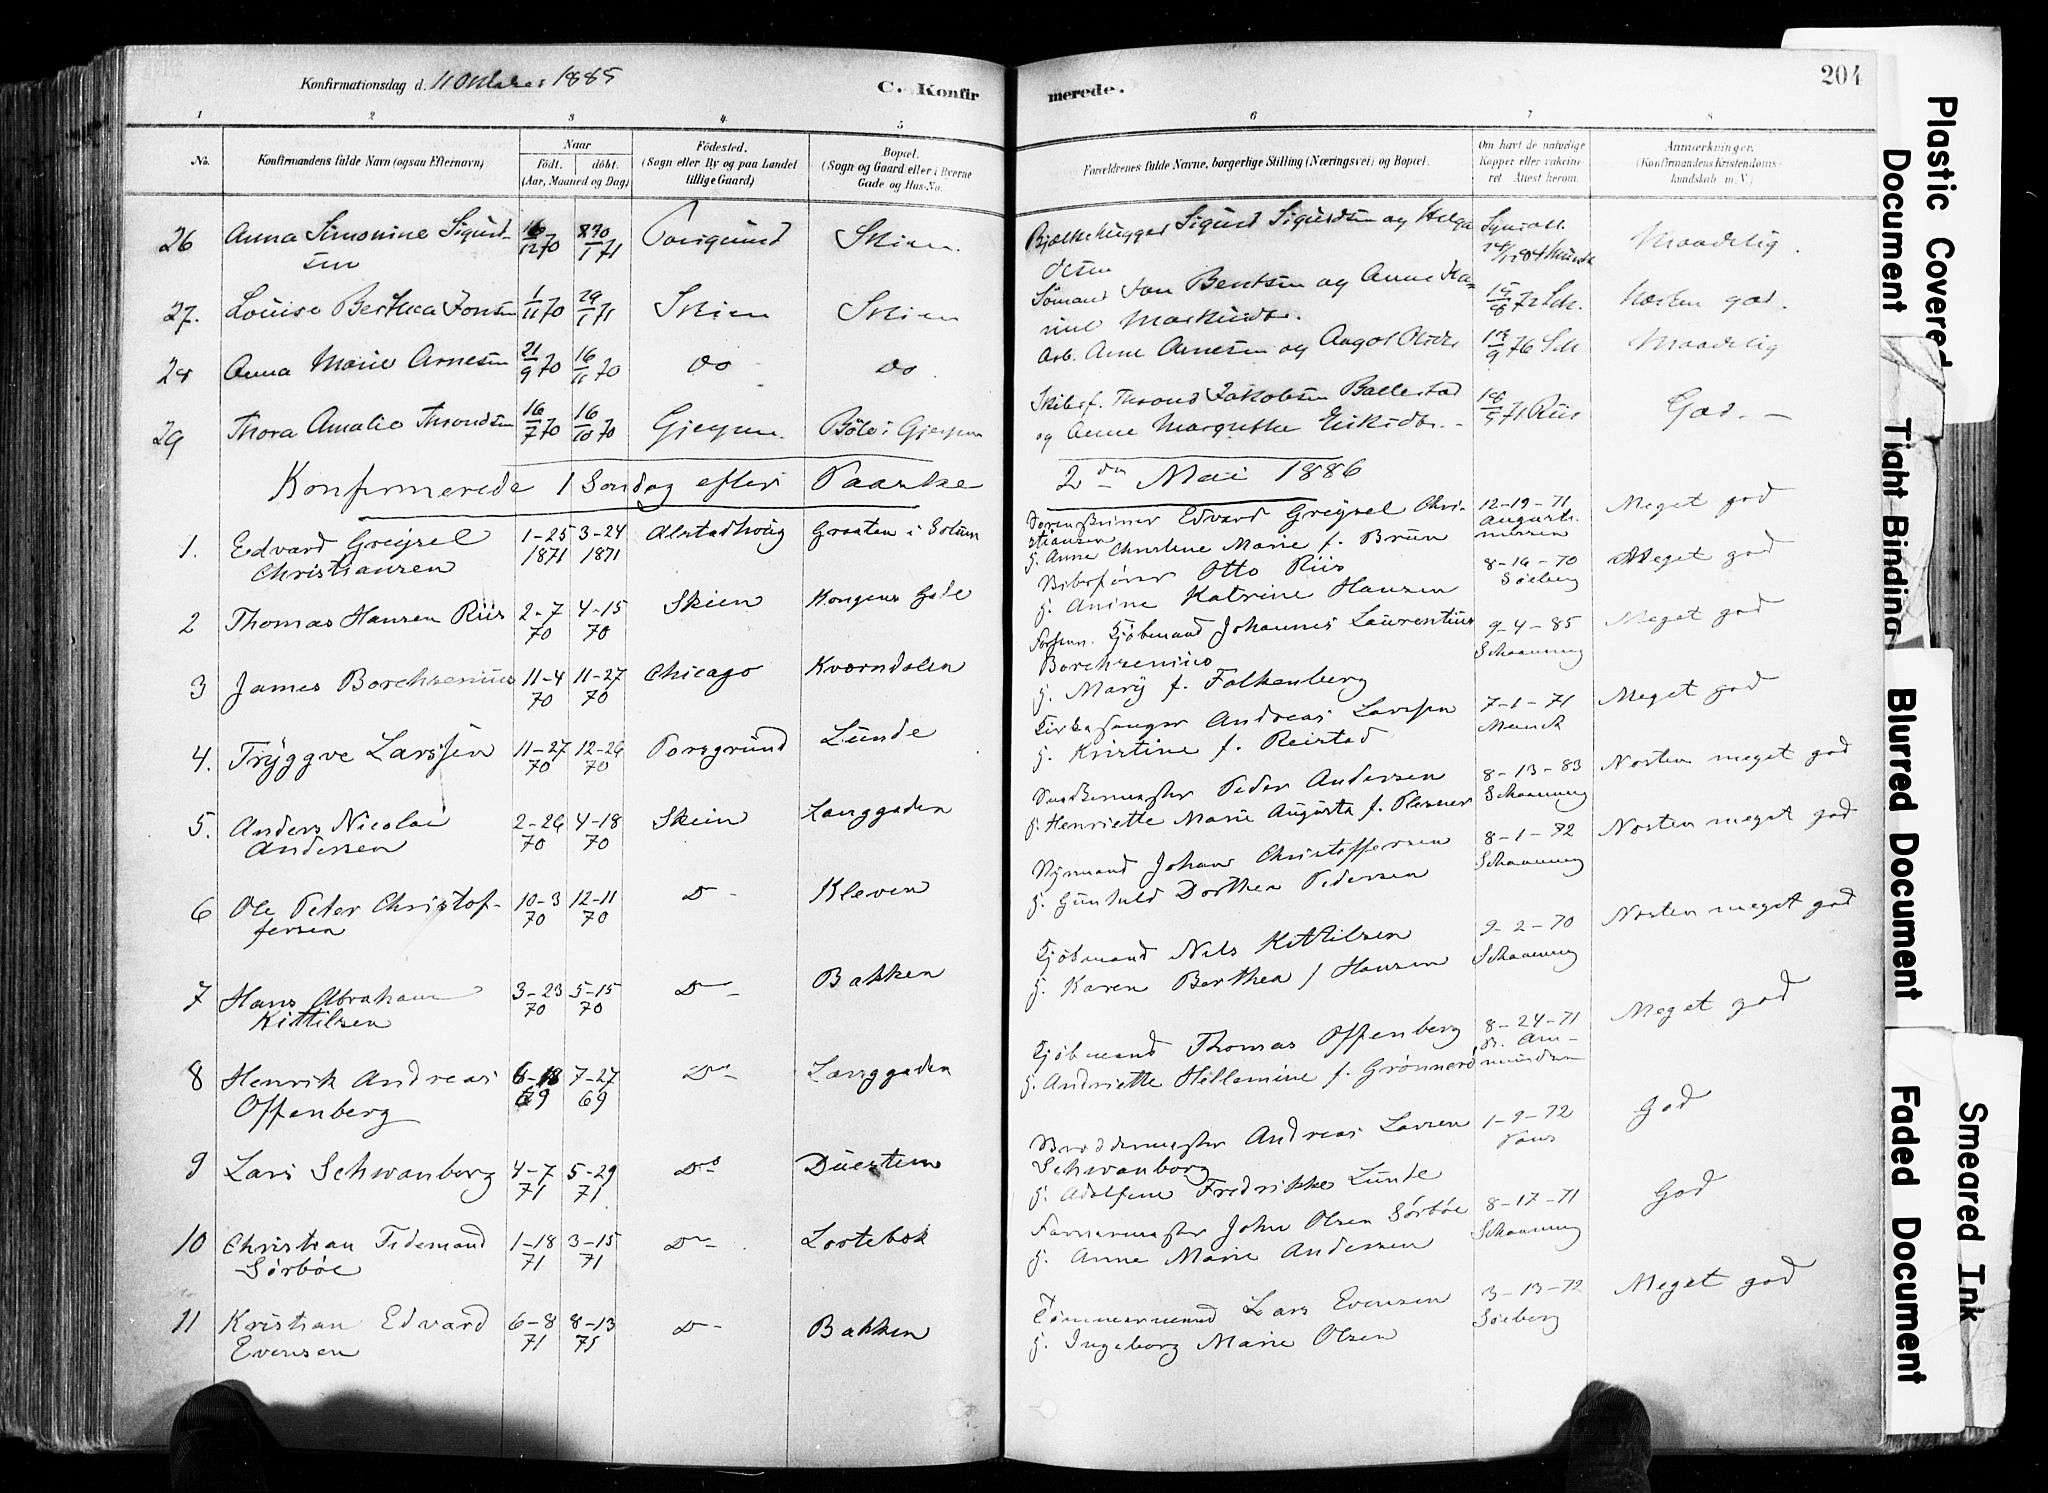 Konfirmationsdag d. 11 Oktober 1885
C. Konfirmerede.
204
1 2 3 4 5 6 7 8
No.
Konfirmandens fulde Navn (ogsaa Efternavn)
Naar
Födt. döbt.
(Aar, Maaned og Dag)
Födested.
(Sogn eller By og paa Landet
tillige Gaard)
Bopæl.
(Sogn og Gaard eller i Byerne
Gade og Hus-No.
Forældrenes fulde Navne, borgerlige Stilling (Næringsvei) og Bopæl.
Om havt de naturlige
Kopper eller vakcine-
ret Attest herom.
Anmærkninger.
(Konfirmandens Kristendoms-
kundskab m. V.)
26 Anna Simonine Sigurd- 16/12 70 1 71 Porsgrund Skien. Bjælkehugger Sigurd Sigurdsen og Helga Maadelig.
sen Olsen
27. Louise Berthea Jonsen 1/11 70 29/1 71 Skien Skien Sömand Jon Bentsen og Anne Ka- 15/8 72 Sch. Næsten god.
rine Markusdr.
28 Anna Marie Arnesen 21/9 70 16/11 70 do do Arb. Arne Arnesen og Aagot Olsdr 9 76 Sch Maadelig
29 Thora Amalie Throndsen 16/7 70 16/10 70 Gjerpen. Böle i Gjerpen Skibsf. Thrond Jakobsen Ballestad 18/5 71 Riis God. —
og Anne Margrethe Eriksdr. -
Konfirmerede 1 Sondag efter Paaske 2den Mai 1886
1. Edvard Greysel 1-25 3-24 Alstadhoug Graaten i Solum Edvard Greysel Chri- 12-19-71 Meget god
Christiansen 1871 1871 stiansen
H. Anne Christine Marie f. Brun
2 Thomas Hansen Riis 2-7 4-15 Skien Kongens Gade Otto Riis 8-16-70 Söeberg Meget god
70 70 H. Anine Katrine Hansen
3 James Borchsenius 11-4 11-27 Chicago Kværndalen Kjöbmand Johannes Laurentius 9-4-85 Schaanning Meget god
70 70 Borchsenius
H. Mary f. Falkenberg
4. Tryggve Larssen 11-27 12-26 Porsgrund Lunde Kirkesanger Andreas Larssen 7-1-71 Munch Meget god
70 70 H. Kristine f. Reistad
5. Anders Nicolai 2-26 4-18 Skien Langgaden Peder Andersen 8-13-83 Schaanning Nesten meget god
Andersen 70 70 H. Henriette Marie Augusta f. Plesner
6 Ole Peter Christof- 10-3 12-11 D- Kleven Johan Christoffersen 8-1-72 Schaanning Nesten meget god
fersen 70 70 H. Gunhild Dorthea Pedersen
7 Hans Abraham 3-23 5-15 Do- Bakken Kjöbmand Nils Kittilsen 9-2-70 Schaanning Nesten meget god
Kittilsen 70 70 H. Karen Berthea f Hansen
8 Henrik Andreas 6-18 7-27 Do- Langgaden Kjöbmand Thomas Offenberg 8-24-71 Meget god
Offenberg 69 69 H. Andriette Hillemine f. Grönnerö Am-
mundsen
9 Lars Schwanborg 4-7 5-29 Do Duestien Andreas Larsen 1-9-72 God
71 71 Schwanborg
H. Adolfine Fredrikke Lunde
10 Christian Tidemand 1-18 3-15 Do- Lortebek Farvermester John Olsen Sörböe 8-17-71 Schaanning God
Sörböe 71 71 H. Anne Marie Andersen
11 Kristian Edvard 6-8 8-13 D- Bakken Tömmermand Lars Evensen 3-13-72 Söeberg Meget god
Evensen 71 71 H. Ingeborg Marie Olsen
Plastic Covered Document
Tight Binding
Blurred Document
Faded Document
Smeared Ink